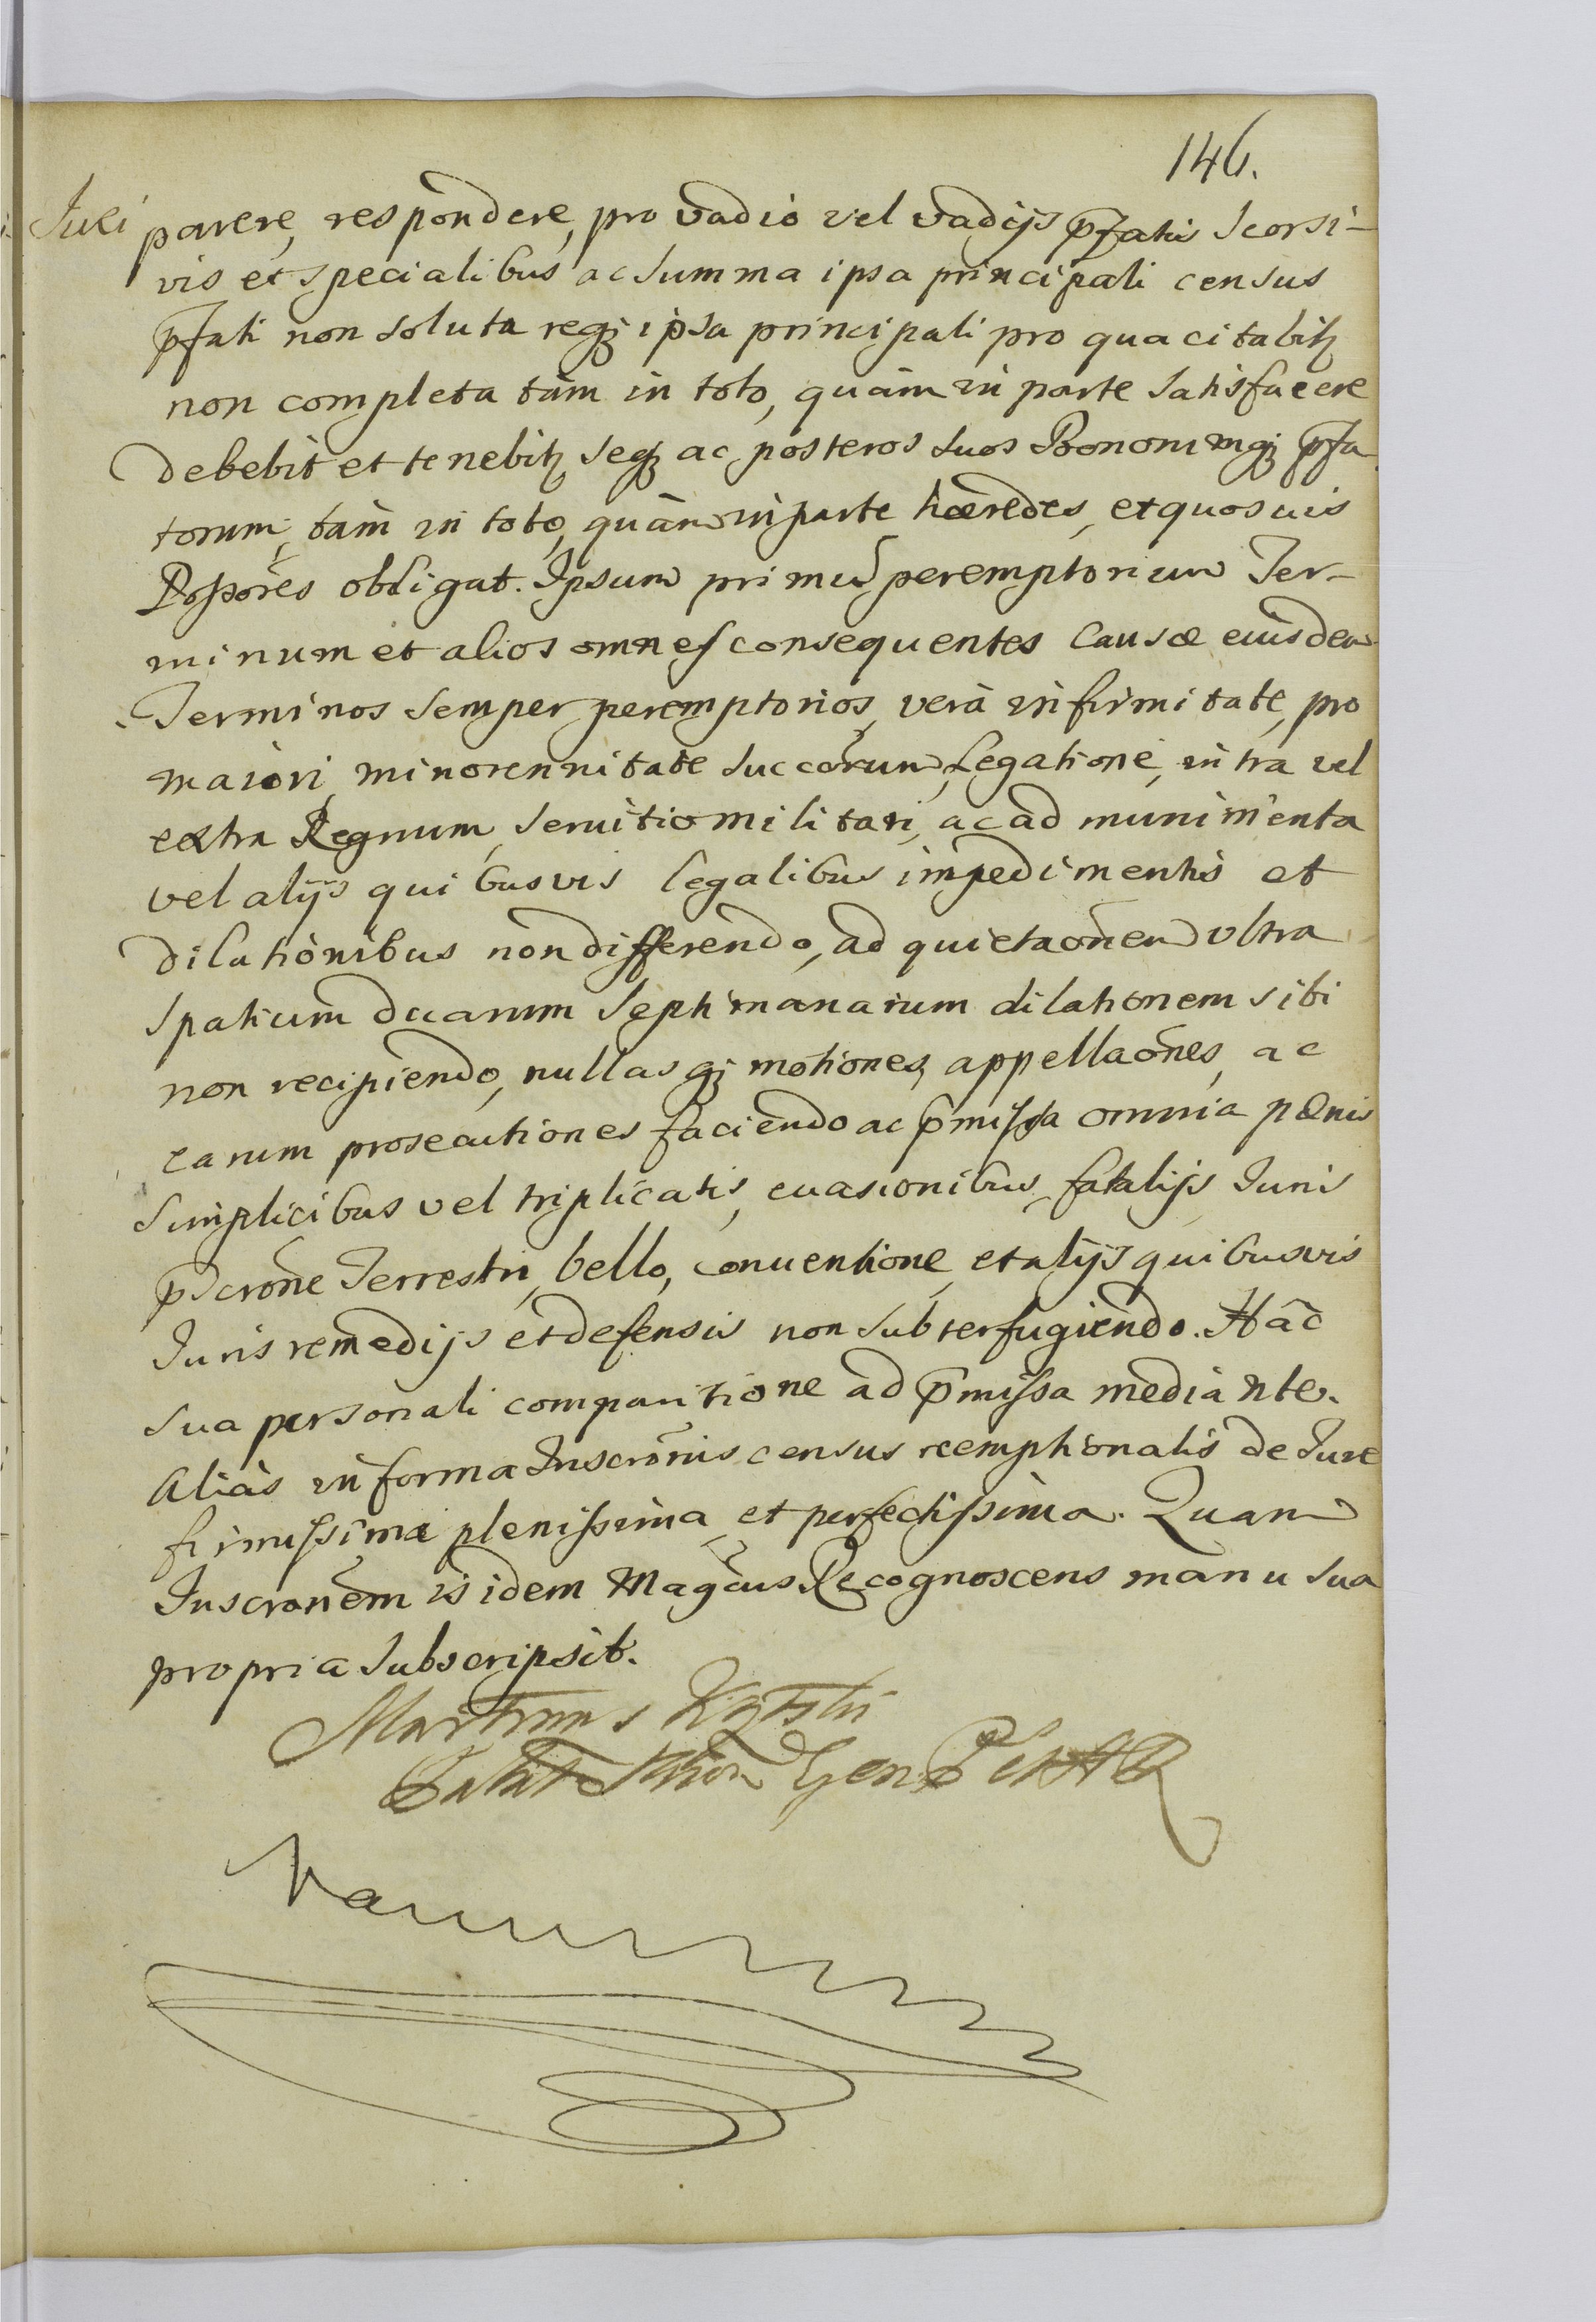 146.
Iuri parere, respondere, pro vadio vel vadijs p̄fatis seorsi-
vis et specialibus ac summa ipsa principali census
p̄fati non soluta reqꝫ ipsa principali pro qua citabitꝫ
non completa tàm in toto, quàm in parte satisfacere
debebit et tenebitꝫ seqꝫ ac posteros suos Bonorumqꝫ p̄fa
torum, tàm in toto, quàm in parte hæredes, et quosuis
Possores obligat. Ipsum primū peremptorium Ter-
minum et alios omnes consequentes causæ eiusdem
Terminos semper peremptorios, verà infirmitate, pro
maiori, minorennitate succorum, Legatione, intra vel
extra Regnum, seruitio militari, ac ad munimenta
vel alijs quibusvis legalibus impedimentis et
dilationibus non differendo, ad quietaōnem vltra
spatium duarum septimanarum dilationem sibi
non recipiendo, nullasqꝫ motiones, appellaōnes, ac
earum prosecutiones faciendo ac p̄missa omnia pœnis
simplicibus vel triplicatis, euasionibus, fatalijs Iuris
p̄scrōne Terrestri, bello, conuentione, et alijs quibusvis
Iuris remedijs et defensis non subterfugiendo. Hāc
sua personali comparitione ad p̄missa mediante.
Aliàs in forma Inscrōnis census reemptionalis de Iure
firmissima plenissima et perfectissima. Quam
Inscrōnem is idem Magcus Recognoscens manu sua
propria subscripsit.
Martinus
Gen